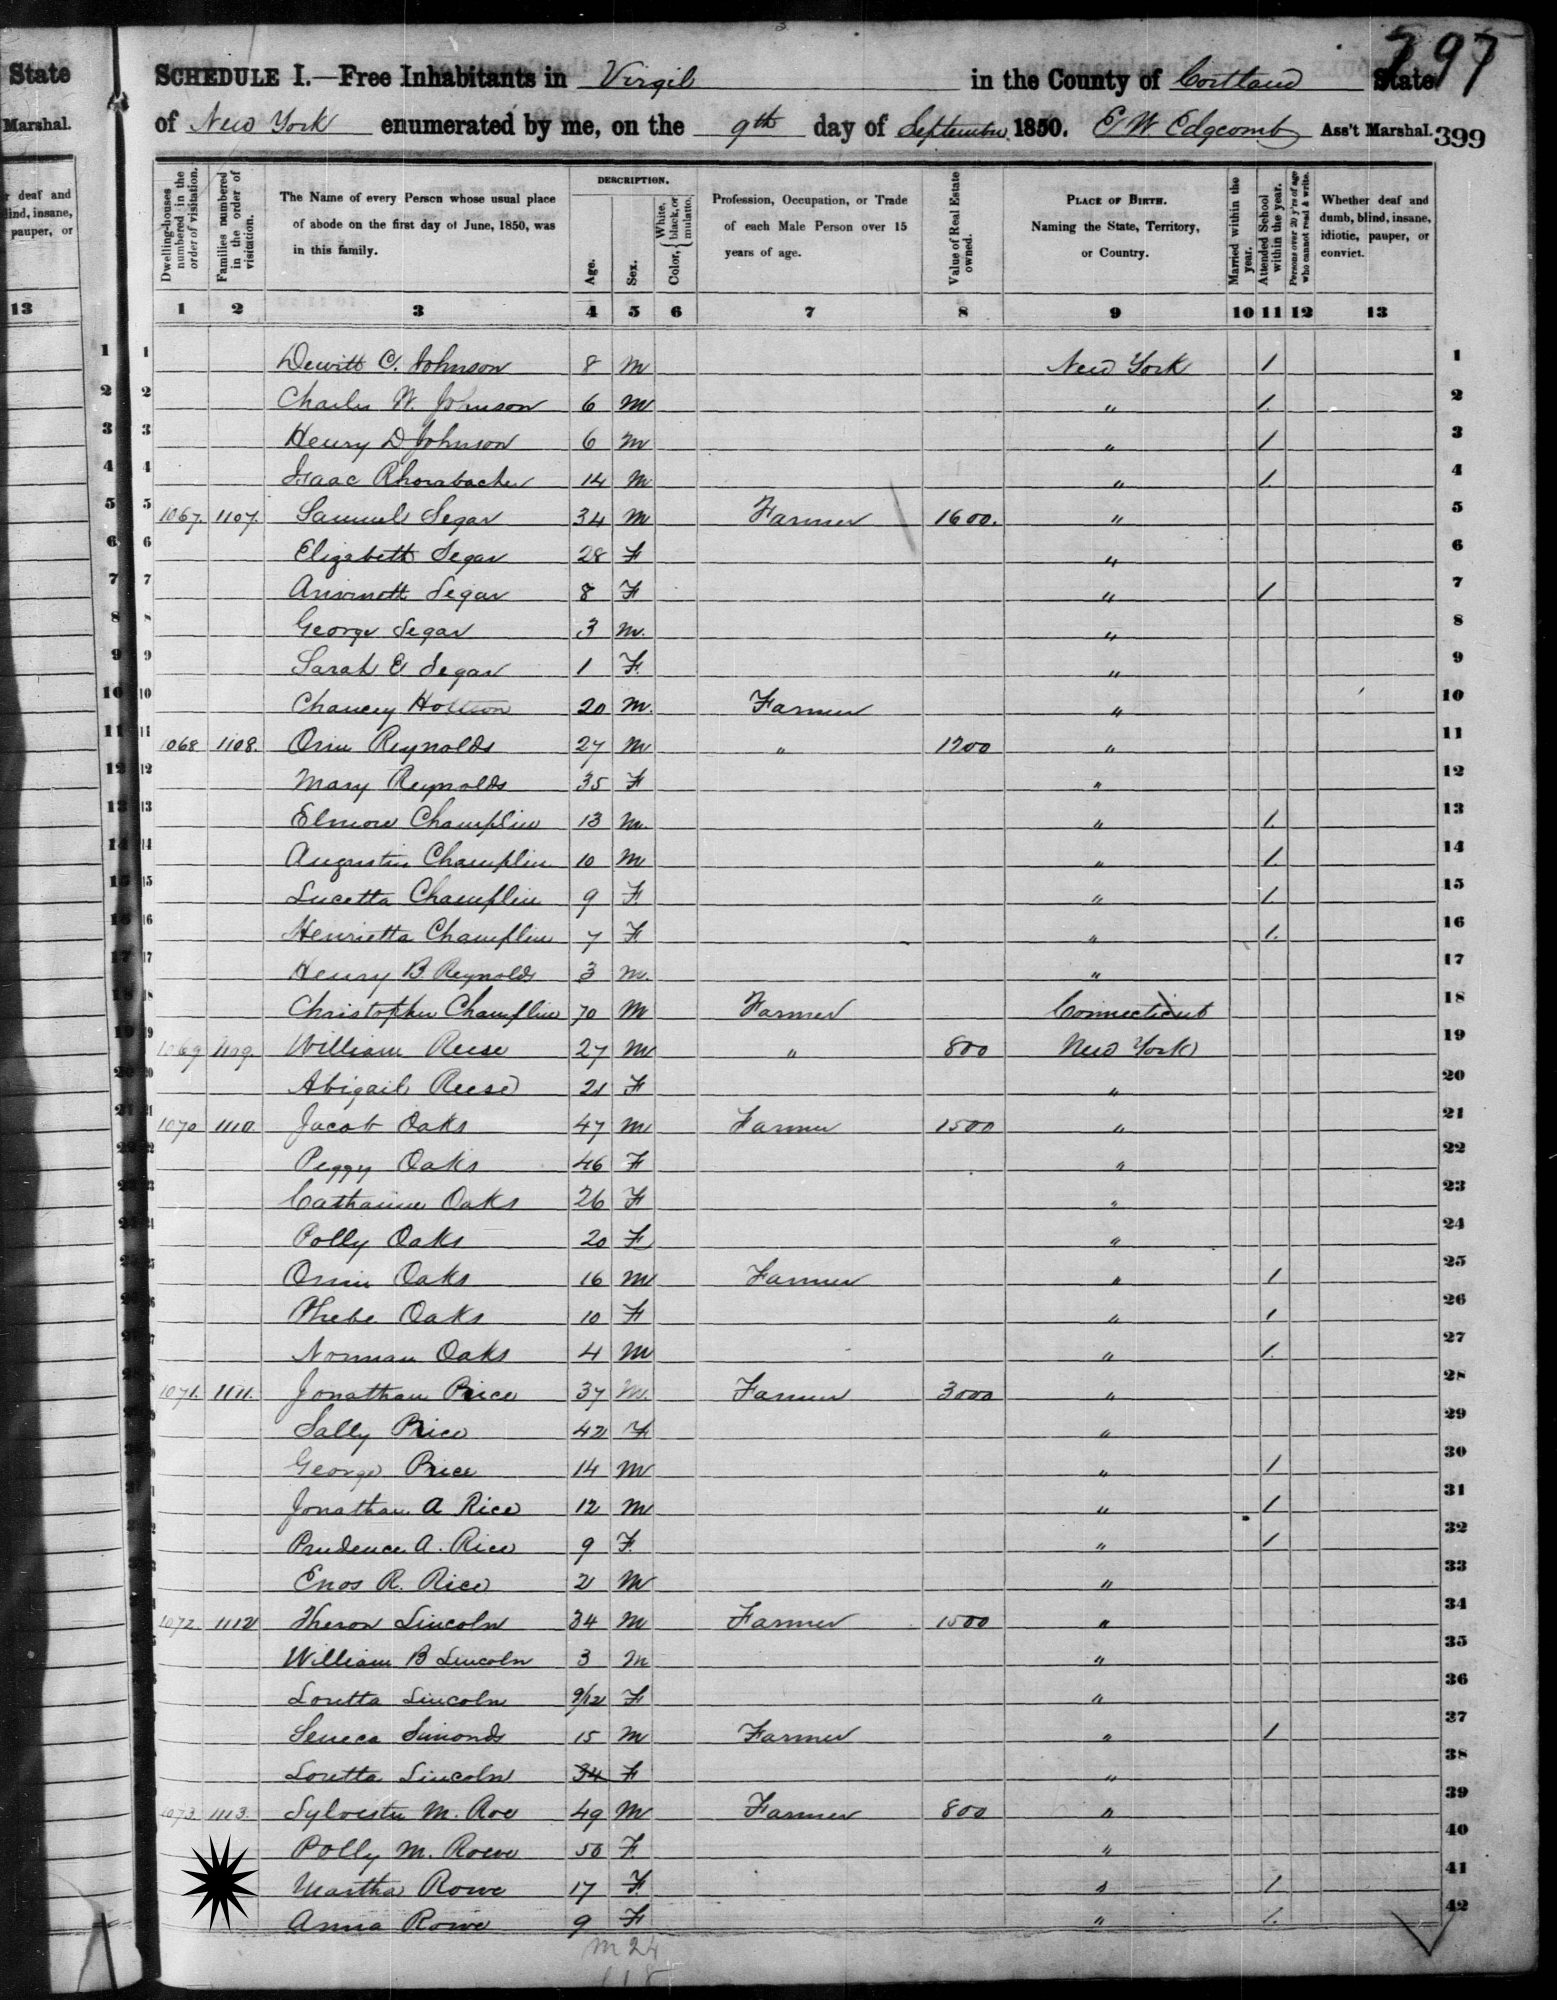 State
Marshal.
r deaf and
lind, insane,
pauper, or
13
797
SCHEDULE I.—Free Inhabitants in Virgil in the County of Cortland State
of New York enumerated by me, on the 9th day of September 1850. E W Edgcomb Ass't Marshal. 399
Dwelling-houses numbered in the order of visitation.
Families numbered in the order of visitation.
The Name of every Person whose usual place of abode on the first day of June, 1850, was in this family.
DESCRIPTION.
Age.
Sex.
Color, { White, black, or mulatto.
Profession, Occupation, or Trade of each Male Person over 15 years of age.
Value of Real Estate owned.
PLACE OF BIRTH. Naming the State, Territory, or Country.
Married within the year.
Attended School within the year.
Persons over 20 y'rs of age who cannot read & write.
Whether deaf and dumb, blind, insane, idiotic, pauper, or convict.
1 2 3 4 5 6 7 8 9 10 11 12 13
1 Dewitt C. Johnson 8 M New York 1 1
2 Charles W. Johnson 6 M " 1. 2
3 Henry D Johnson 6 M " 1 3
4 Isaac Rhorabacher 14 M " 1. 4
5 1067. 1107. Samuel Segar 34 M Farmer 1600. " 5
6 Elizabeth Segar 28 F " 6
7 Segar 8 F " 1 7
8 George Segar 3 M. " 8
9 Sarah E Segar 1 F. " 9
10 Chancey 20 M. Farmer " 10
11 1068 1108. Orin Reynolds 27 M " 1200 " 11
12 Mary Reynolds 35 F " 12
13 Elmore Champlin 13 M. " 1. 13
14 Augustin Champlin 10 M " 1. 14
15 Lucetta Champlin 9 F " 1 15
16 Henrietta Champlin 7 F " 1. 16
17 Henry B. Reynolds 3 M. " 17
18 Christopher Champlin 70 M Farmer Connecticut 18
19 1069 1109. William Reese 27 M " 800 New York 19
20 Abigail Reese 21 F " 20
21 1070 1110. Jacob Oaks 47 M Farmer 1500 " 21
22 Peggy Oaks 46 F " 22
23 Catharine Oaks 26 F " 23
24 Polly Oaks 20 F " 24
25 Orrin Oaks 16 M Farmer " 1 25
26 Phebe Oaks 10 F " 1 26
27 Norman Oaks 4 M " 1. 27
28 1071. 1111. Jonathan Rice 37 M. Farmer 3000 " 28
Sally Rice 42 F " 29
George Rice 14 M " 1 30
Jonathan A Rice 12 M " 1 31
Prudence A. Rice 9 F. " 1 32
Enos R. Rice 2 M " 33
1072 1112 Theron Lincoln 34 M Farmer 1500 " 34
William B Lincoln 3 M " 35
Loretta Lincoln 9/12 F " 36
Seneca Simonds 15 M Farmer " 1 37
Loretta Lincoln 34 F " 38
1073 1113. Sylvester M. Roe 49 M Farmer 800 " 39
Polly M. Rowe 50 F. " 40
Martha Rowe 17 F. " 1. 41
Anna Rowe 9 F " 1. 42
M 24